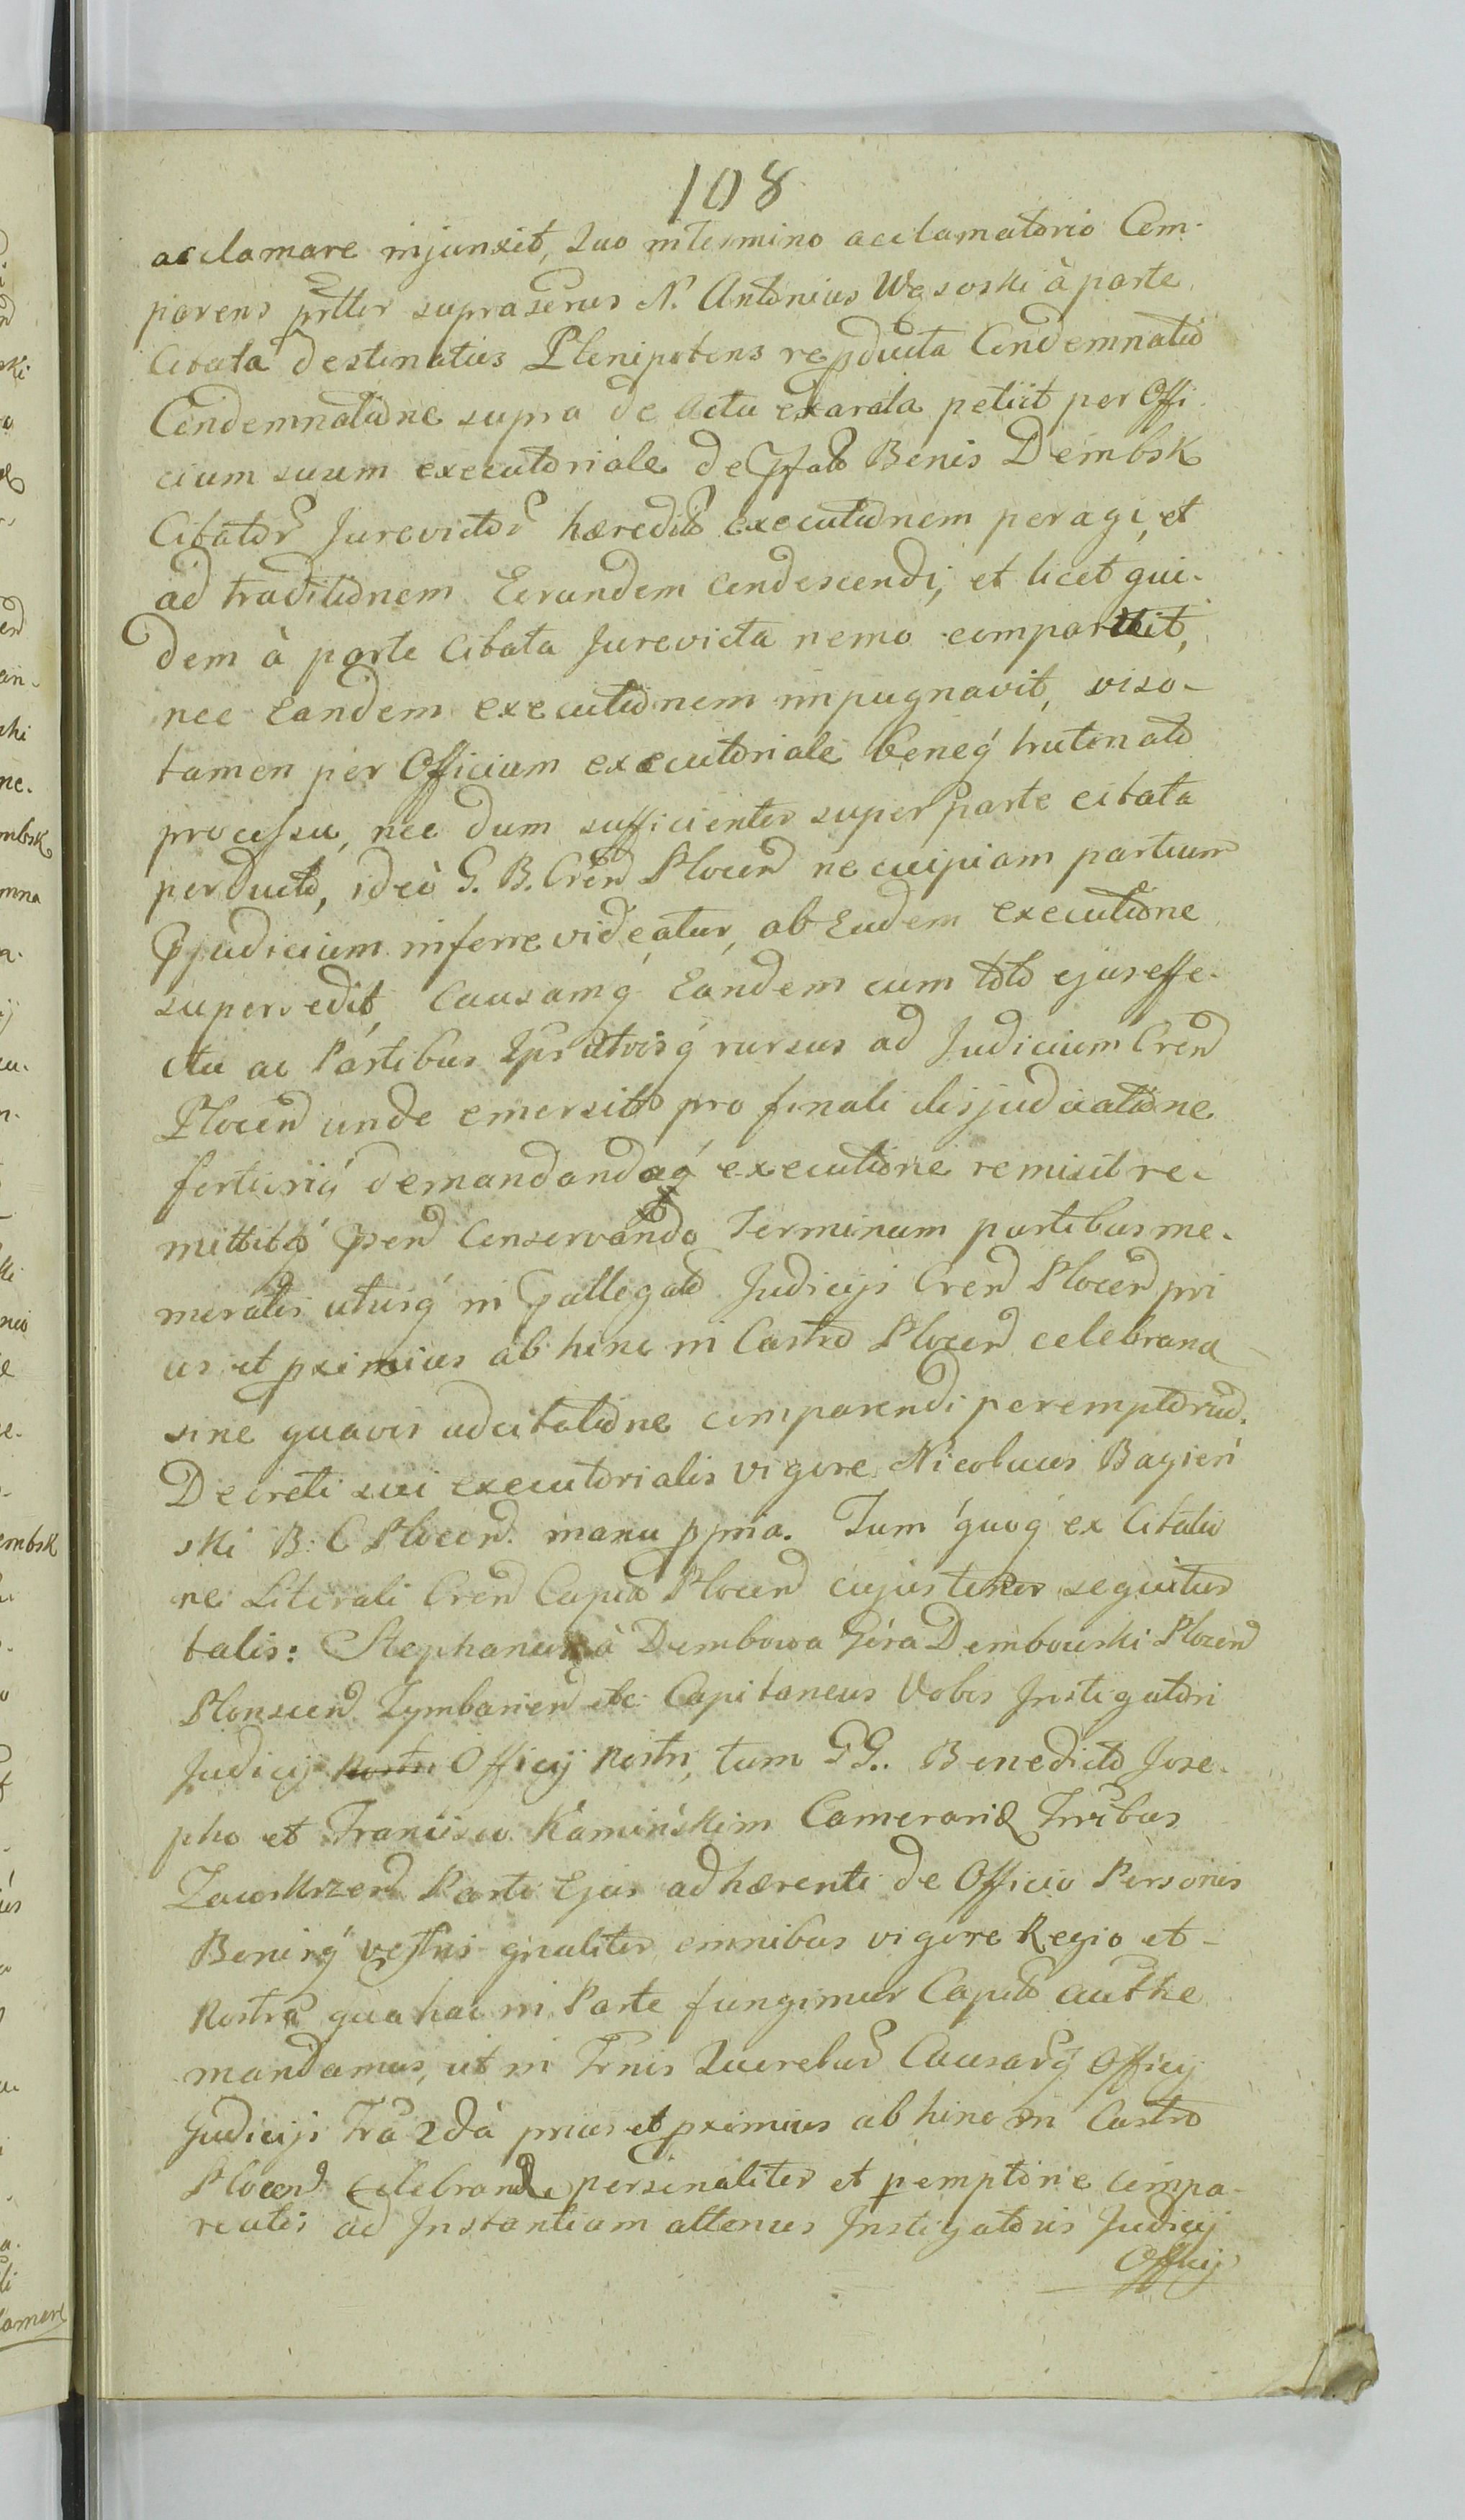 108
acclamare injunxit, Quo in Termino acclamatorio Com-
parens prtter suprasērus N. Antonius Wąsoski à parte
Citata destinatus Plenipotens reproducta Condemnato
Condemnatione supra de Actu exarata petiit per Offi
cium suum executoriale de Bonis Dembsk
Citator Jurevictor hæredit executionem peragi, et
ad traditionem Eorundem condescendi, et licet qui-
dem à parte Citata Jurevicta nemo comparuit,
nec Eandem executionem impugnavit, viso-
tamen per Officium executoriale beneq́ trutinato
processu, nec dum sufficienter super parte citata
perducto, ideò G. B. Cren Plocen ne cuipiam partium
Pjudicium inferre videatur, ab Eadem executione
supersedit, Causamq́ Eandem cum toto ejus effe-
ctu ac Partibus Iprs utrisq́ rursus ad Judicium Cren
Plocen unde emersit pro finali disjudicatione
fortiorisq́ demandandaq́ executione remisit re-
mittitq́ Psen Conservando Terminum partibus me-
moratis utrisq́ in Pallegato Judicijs Cren Plocen pri
us et pximius ab hinc in Castro Plocen celebrand
sine quavis adcitatione comparendi peremptorium.
Decreti sui executorialis vigore Nicolaus Bagień
ski B: C Plocen. manu ppria. Tum quoq́ ex Citatio
ne Literali Cren Capia Plocen cujus tenor sequitur
talis: Stephanus à Dembowa Góra Dembowski Plocen
Plonscen Tymbarien etc Capitaneus Vobis Instigatori
Judicij nostri Officij nostri, tum GG.. Benedicto Jose-
pho et Francisco Kamińskim Camerarid Trribus
Zawskrzen Parti Ejus adhærenti de Officio Personis
Bonisq́ vestris gńaliter omnibus vigore Regio et-
Nostra qua hac in Parte fungimur Capit authe
mandamus, ut in Trnis Querelar Causarq́ Officij
Judicijs Tra 2da prius et pximius ab hinc in Castro
Plocen. Celebrand personaliter et pemptorie compa-
reatis ad Instantiam attenus Instigatoris Judicij
Officij